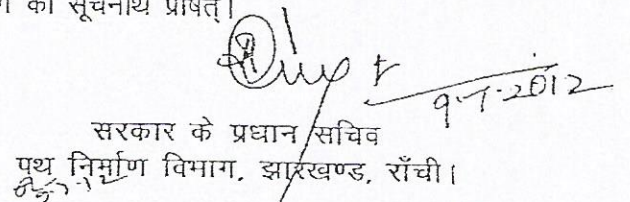 को सूचनार्थ प्रेषित्।
9-7-2012
सरकार के प्रधान सचिव
पथ निर्माण विभाग, झारखण्ड, राँची।